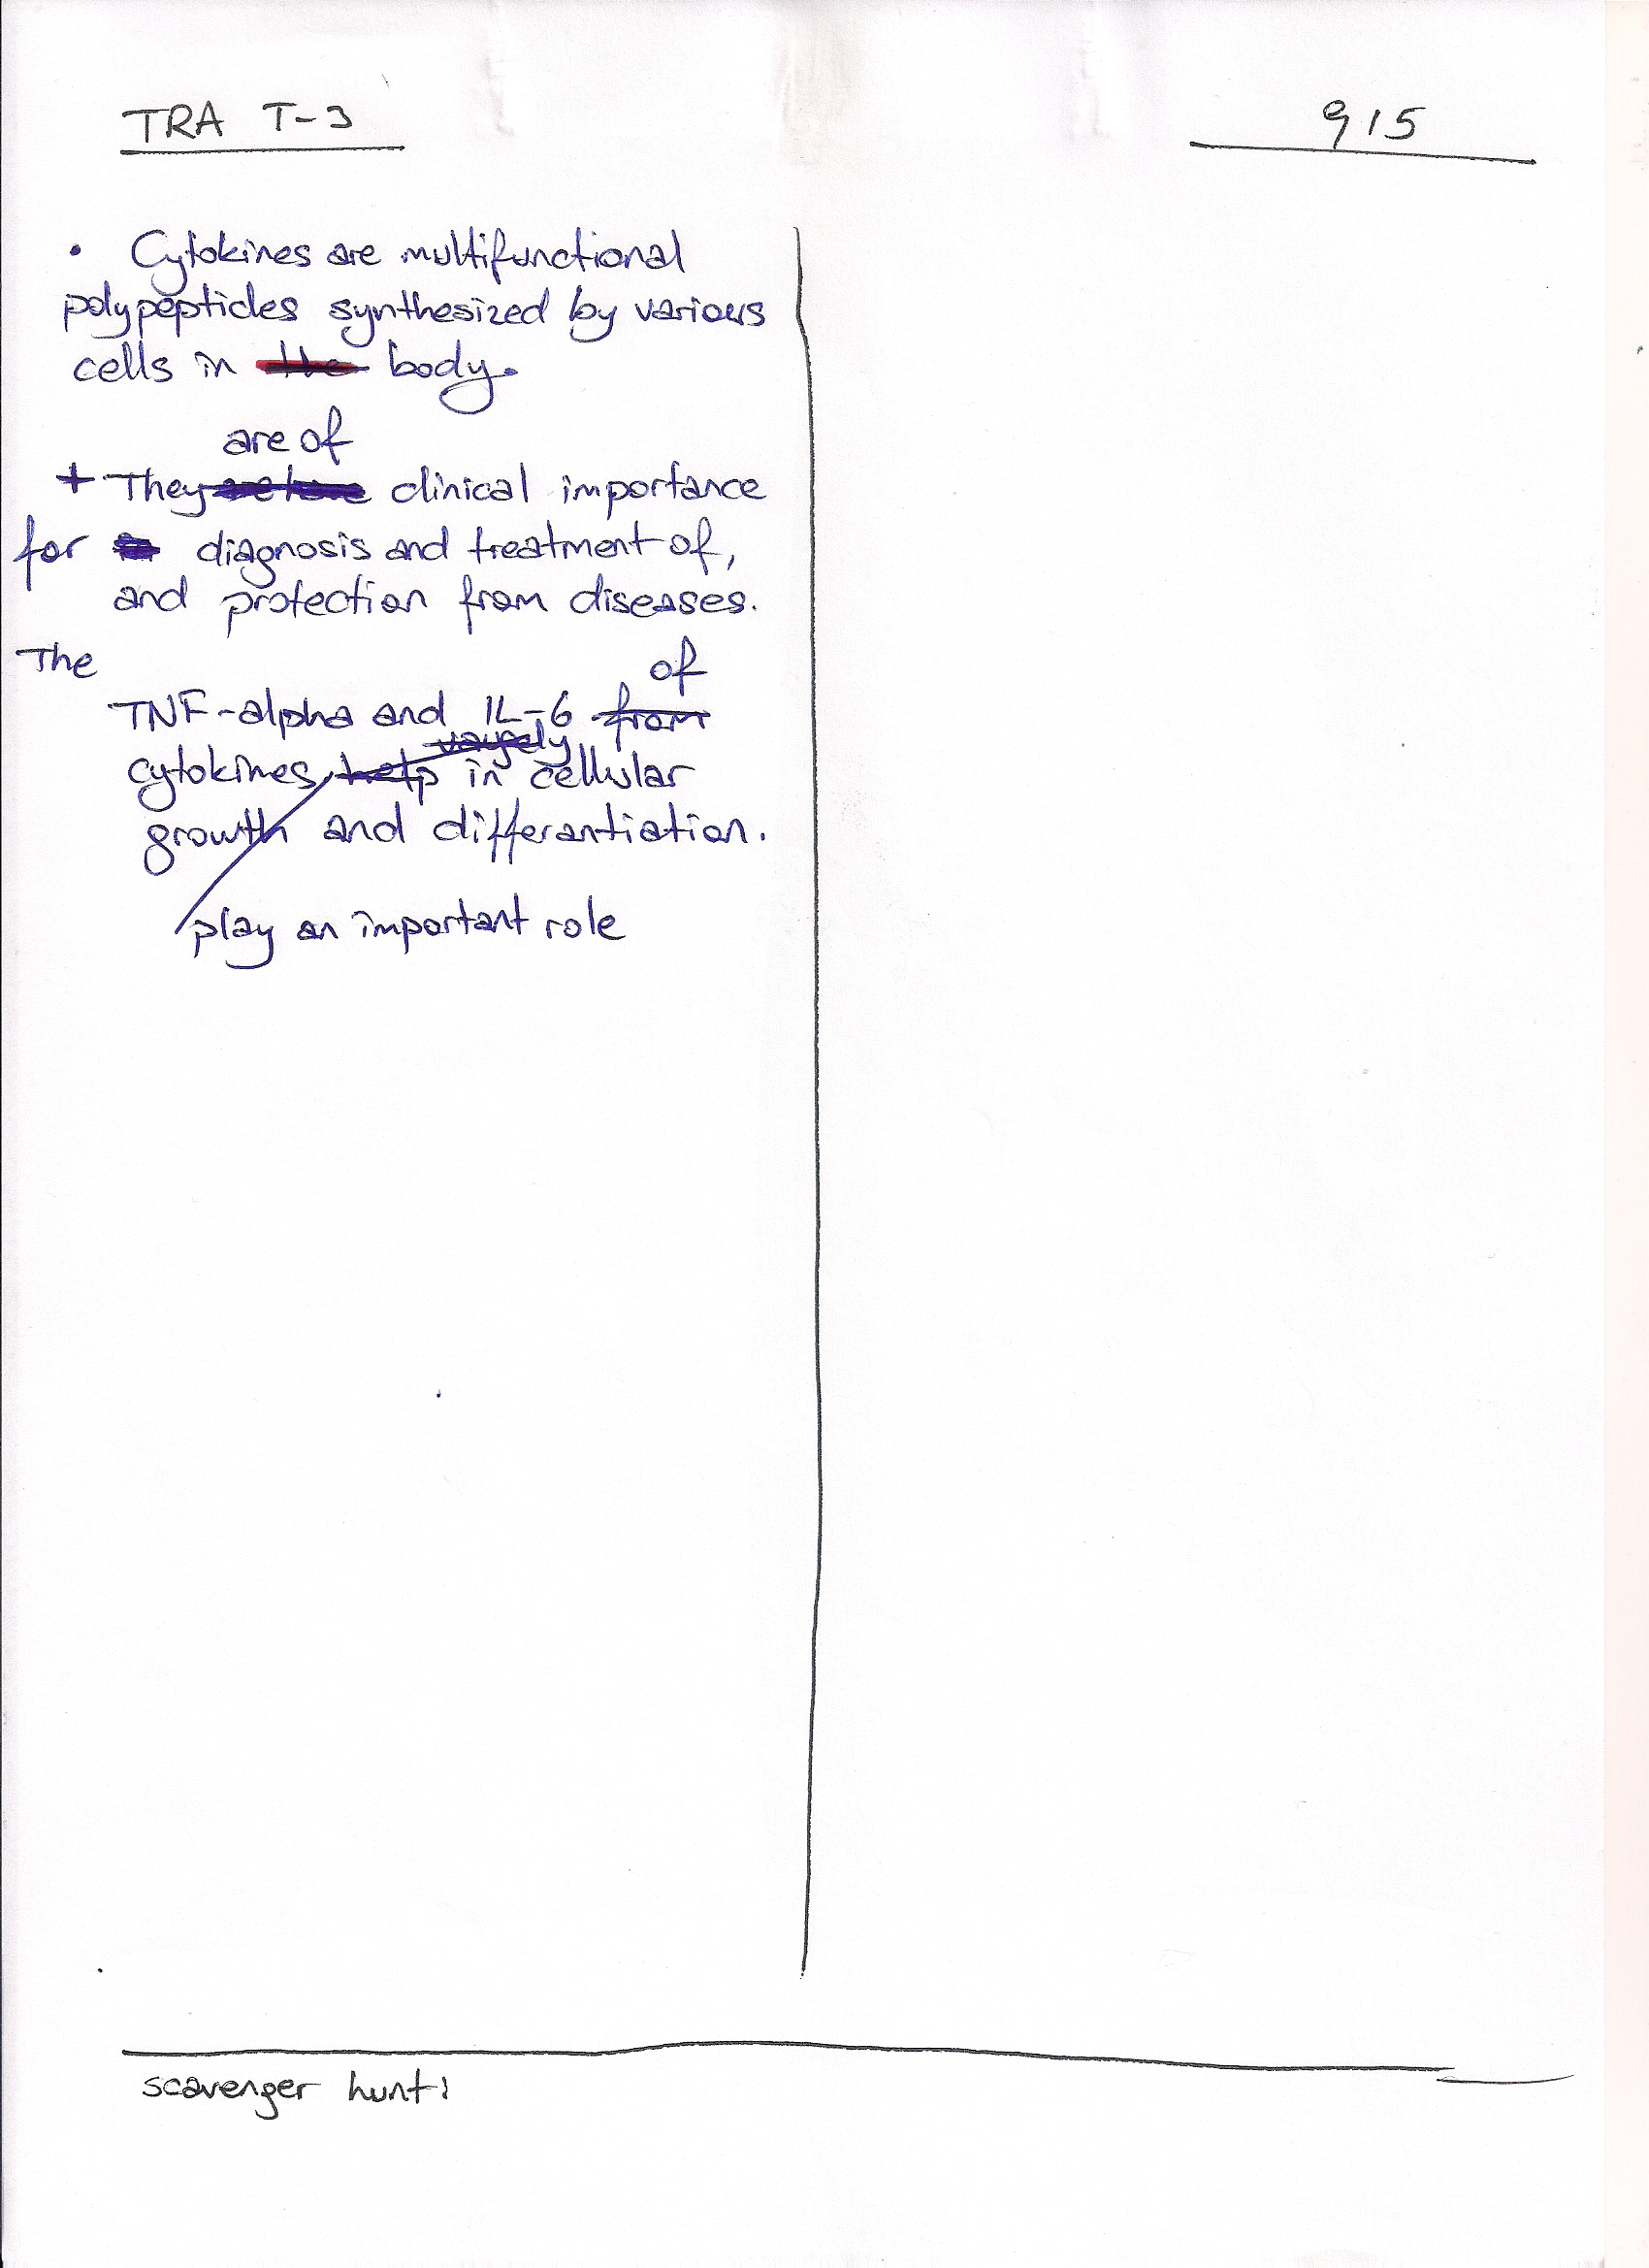 TRA T-3
915
• Cytokines are multifunctional
polypeptides synthesized by various
cells in the body.
are of
+ They clinical importance
for diagnosis and treatment of,
and protection from diseases.
The
of
TNF-alpha and IL-6 from
vaguely
cytokines help in cellular
growth and differantiation.
play an important role
scavenger hunt: